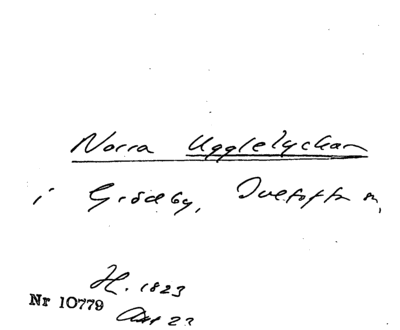 Norra Ugglelyckan
i Grödby, Tvetofta sn,
H. 1823
Nr 10779